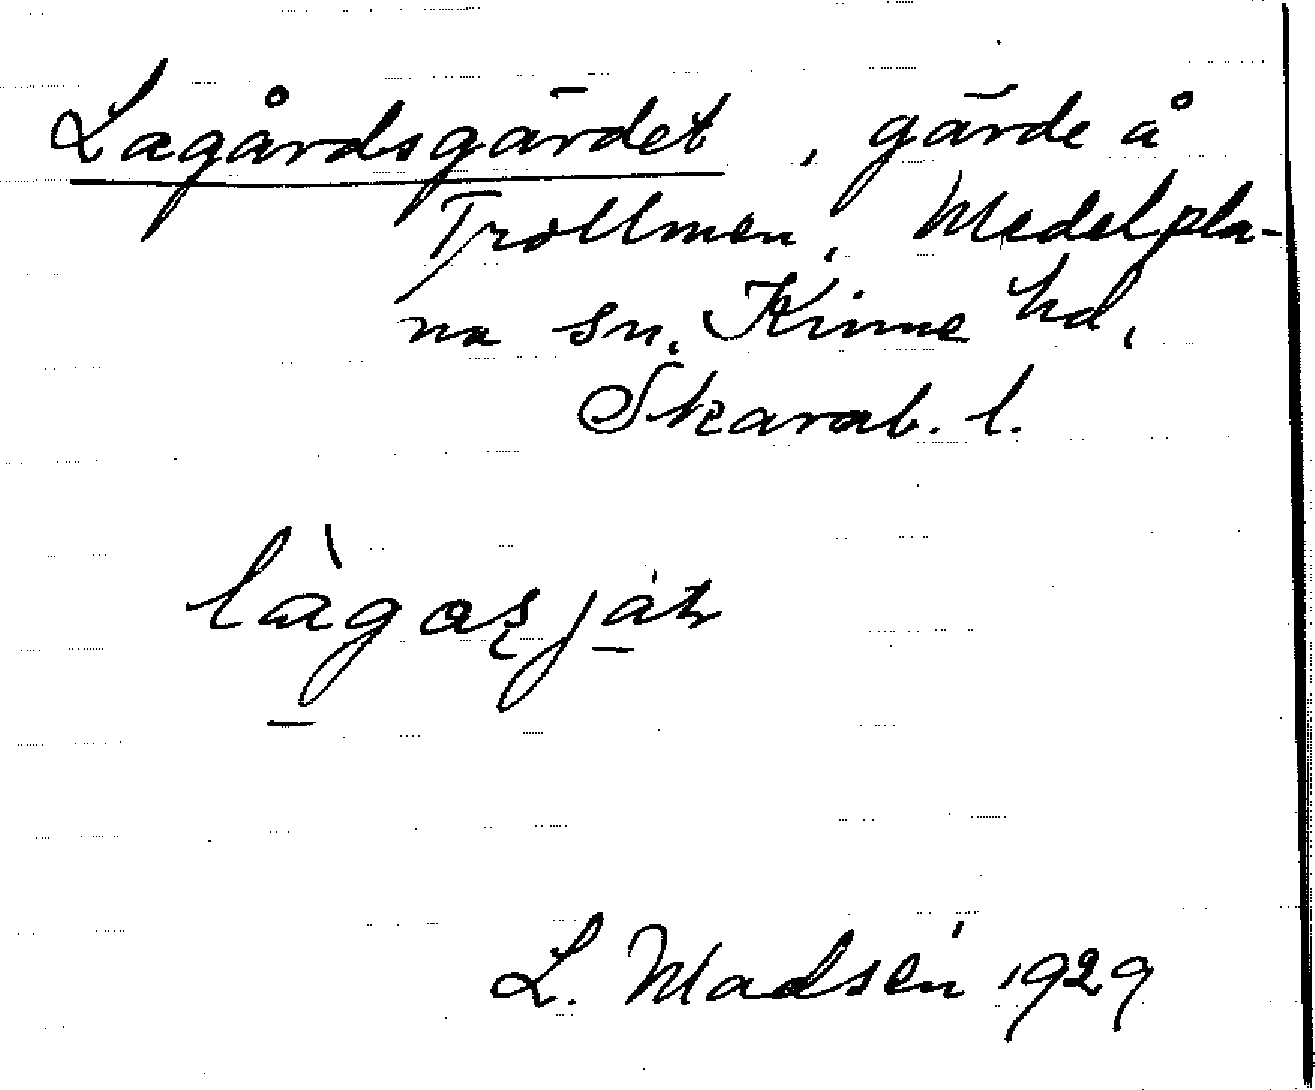 Lagårdsgärdet, gärde å
Trollmen, Medelpla-
na sn. Kinne hd,
Skarab. l.
L. Madsén 1929